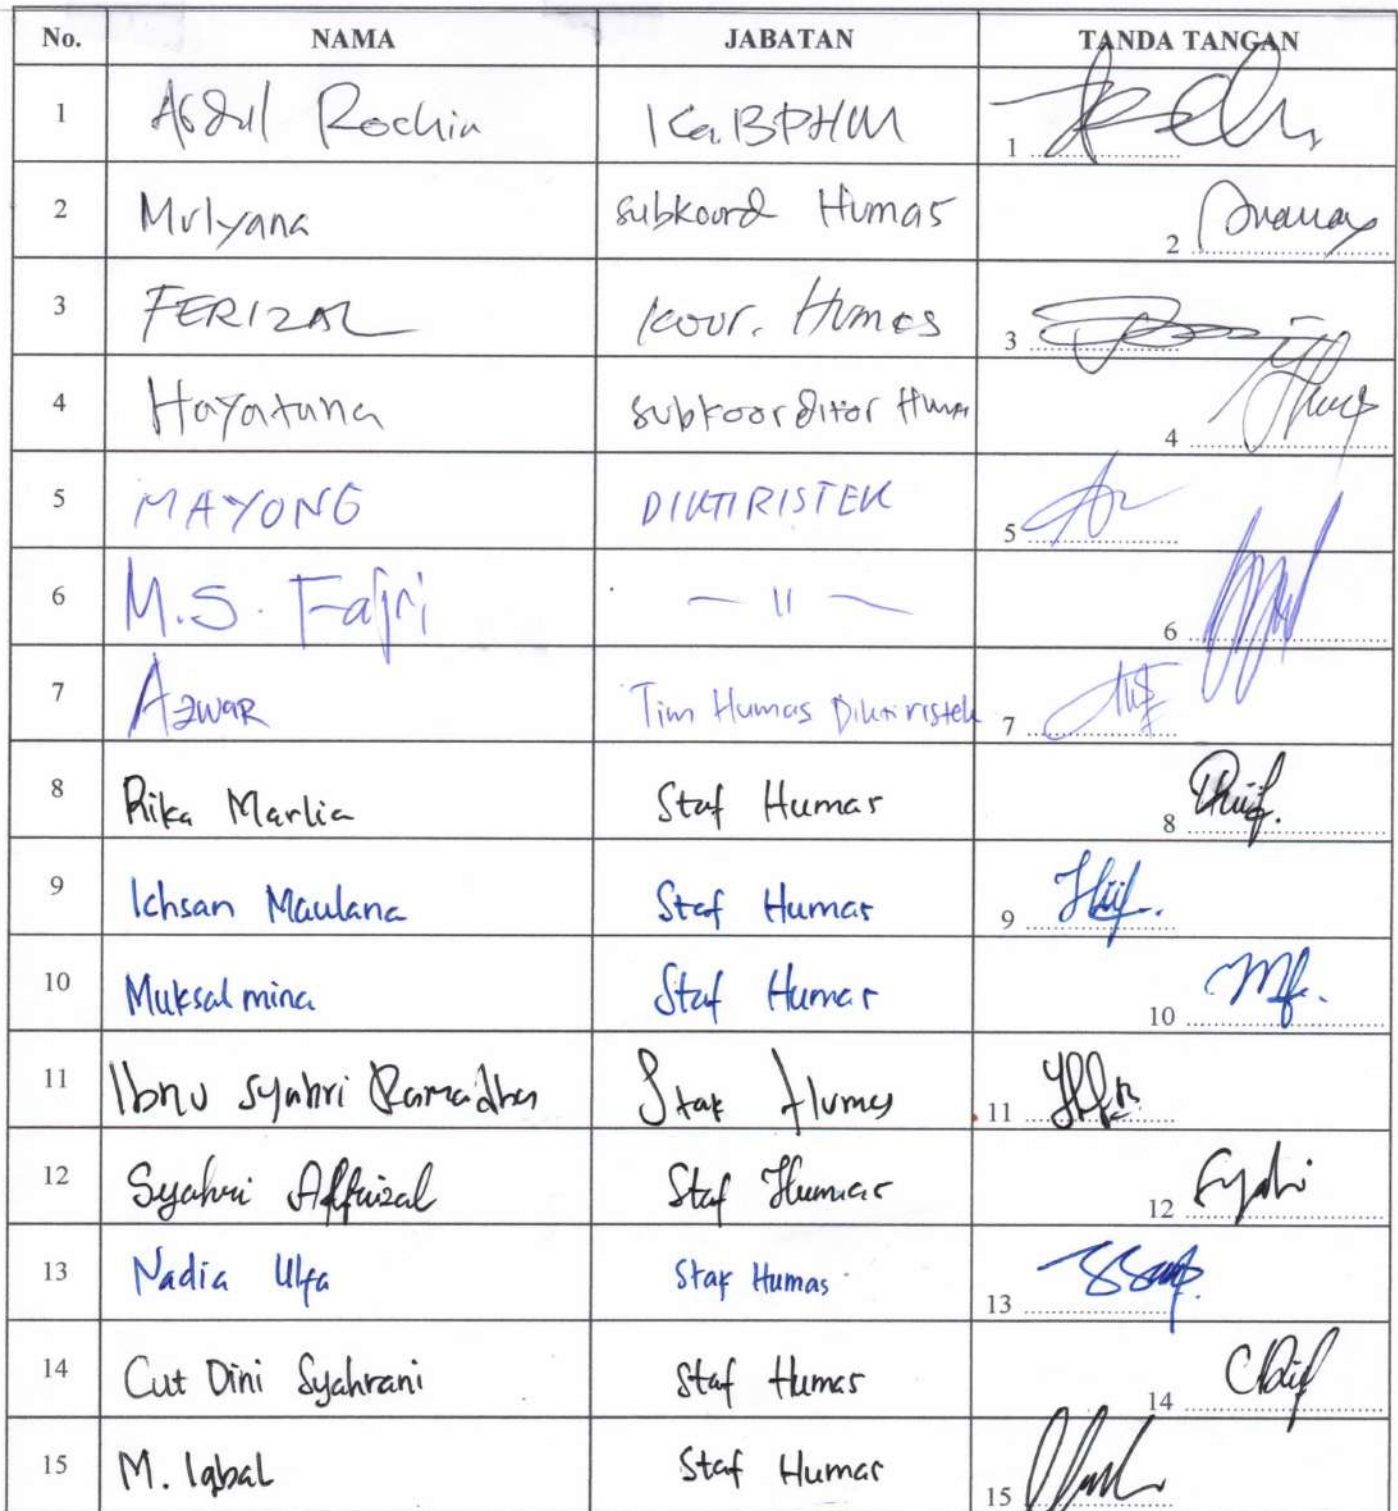 No. NAMA JABATAN TANDA TANGAN
1 Abdul Rochim Ka.BPHM 1
2 Mulyana subkoord Humas 2
3 FERIZAL koor. Humas 3
4 Hayatuna subkoorditor Humas 4
5 MAYONG DIKTIRISTEK 5
6 M.S. Fajri — 11 — 6
7 Azwar Tim Humas Diktiristek 7
8 Rika Marlia Staf Humas 8
9 Ichsan Maulana Staf Humas 9
10 Muksalmina Staf Humas 10
11 Ibnu Syahri Ramadhan Staf Humas 11
12 Syahri Affrizal Staf Humas 12
13 Nadia Ulfa Staf Humas 13
14 Cut Dini Syahrani Staf Humas 14
15 M. Iqbal Staf Humas 15